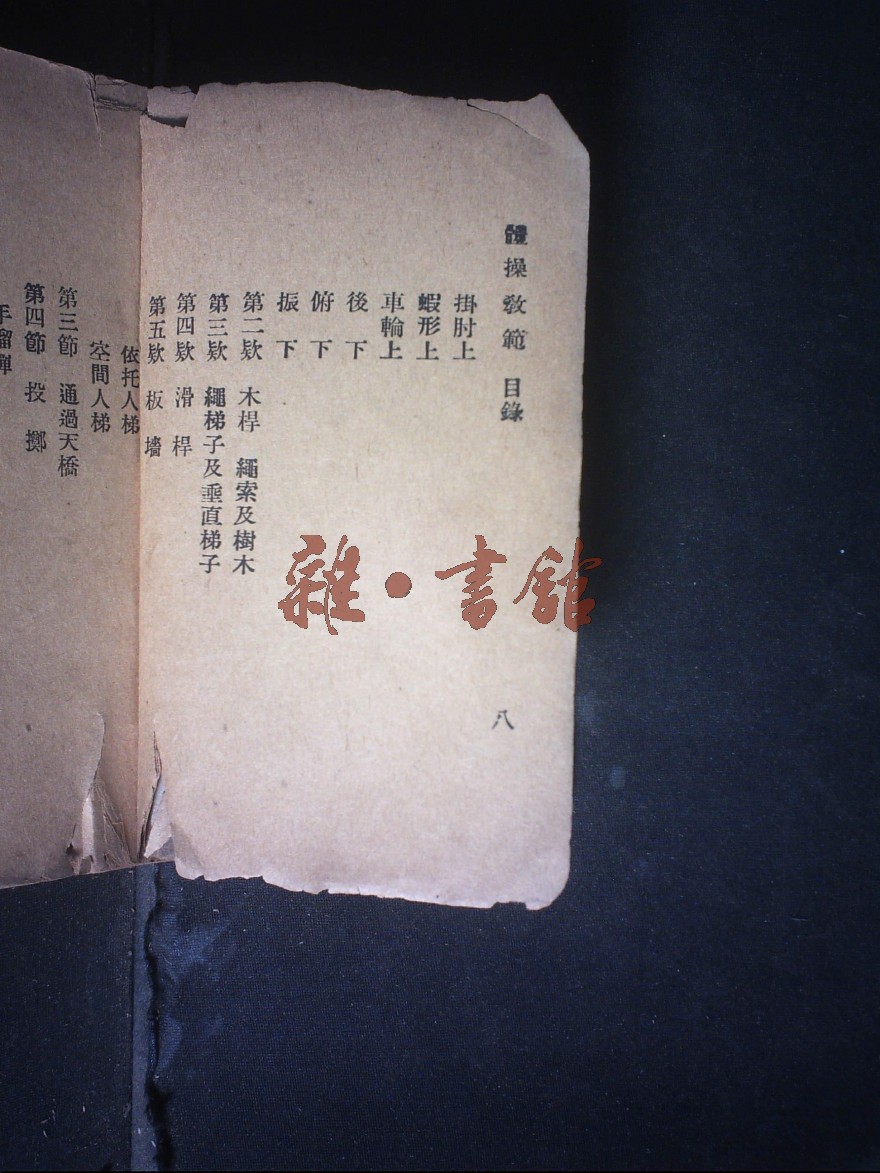 體操教範 目錄
八
掛肘上
蝦形上
車輪上
後下
俯下
振下
第二欵 木桿 繩索及樹木
第三欵 繩梯子及垂直梯子
第四欵 滑桿
第五欵 板墻
依托人梯
空間人梯
第三節 通過天橋
第四節 投擲
手榴彈
雜·書館